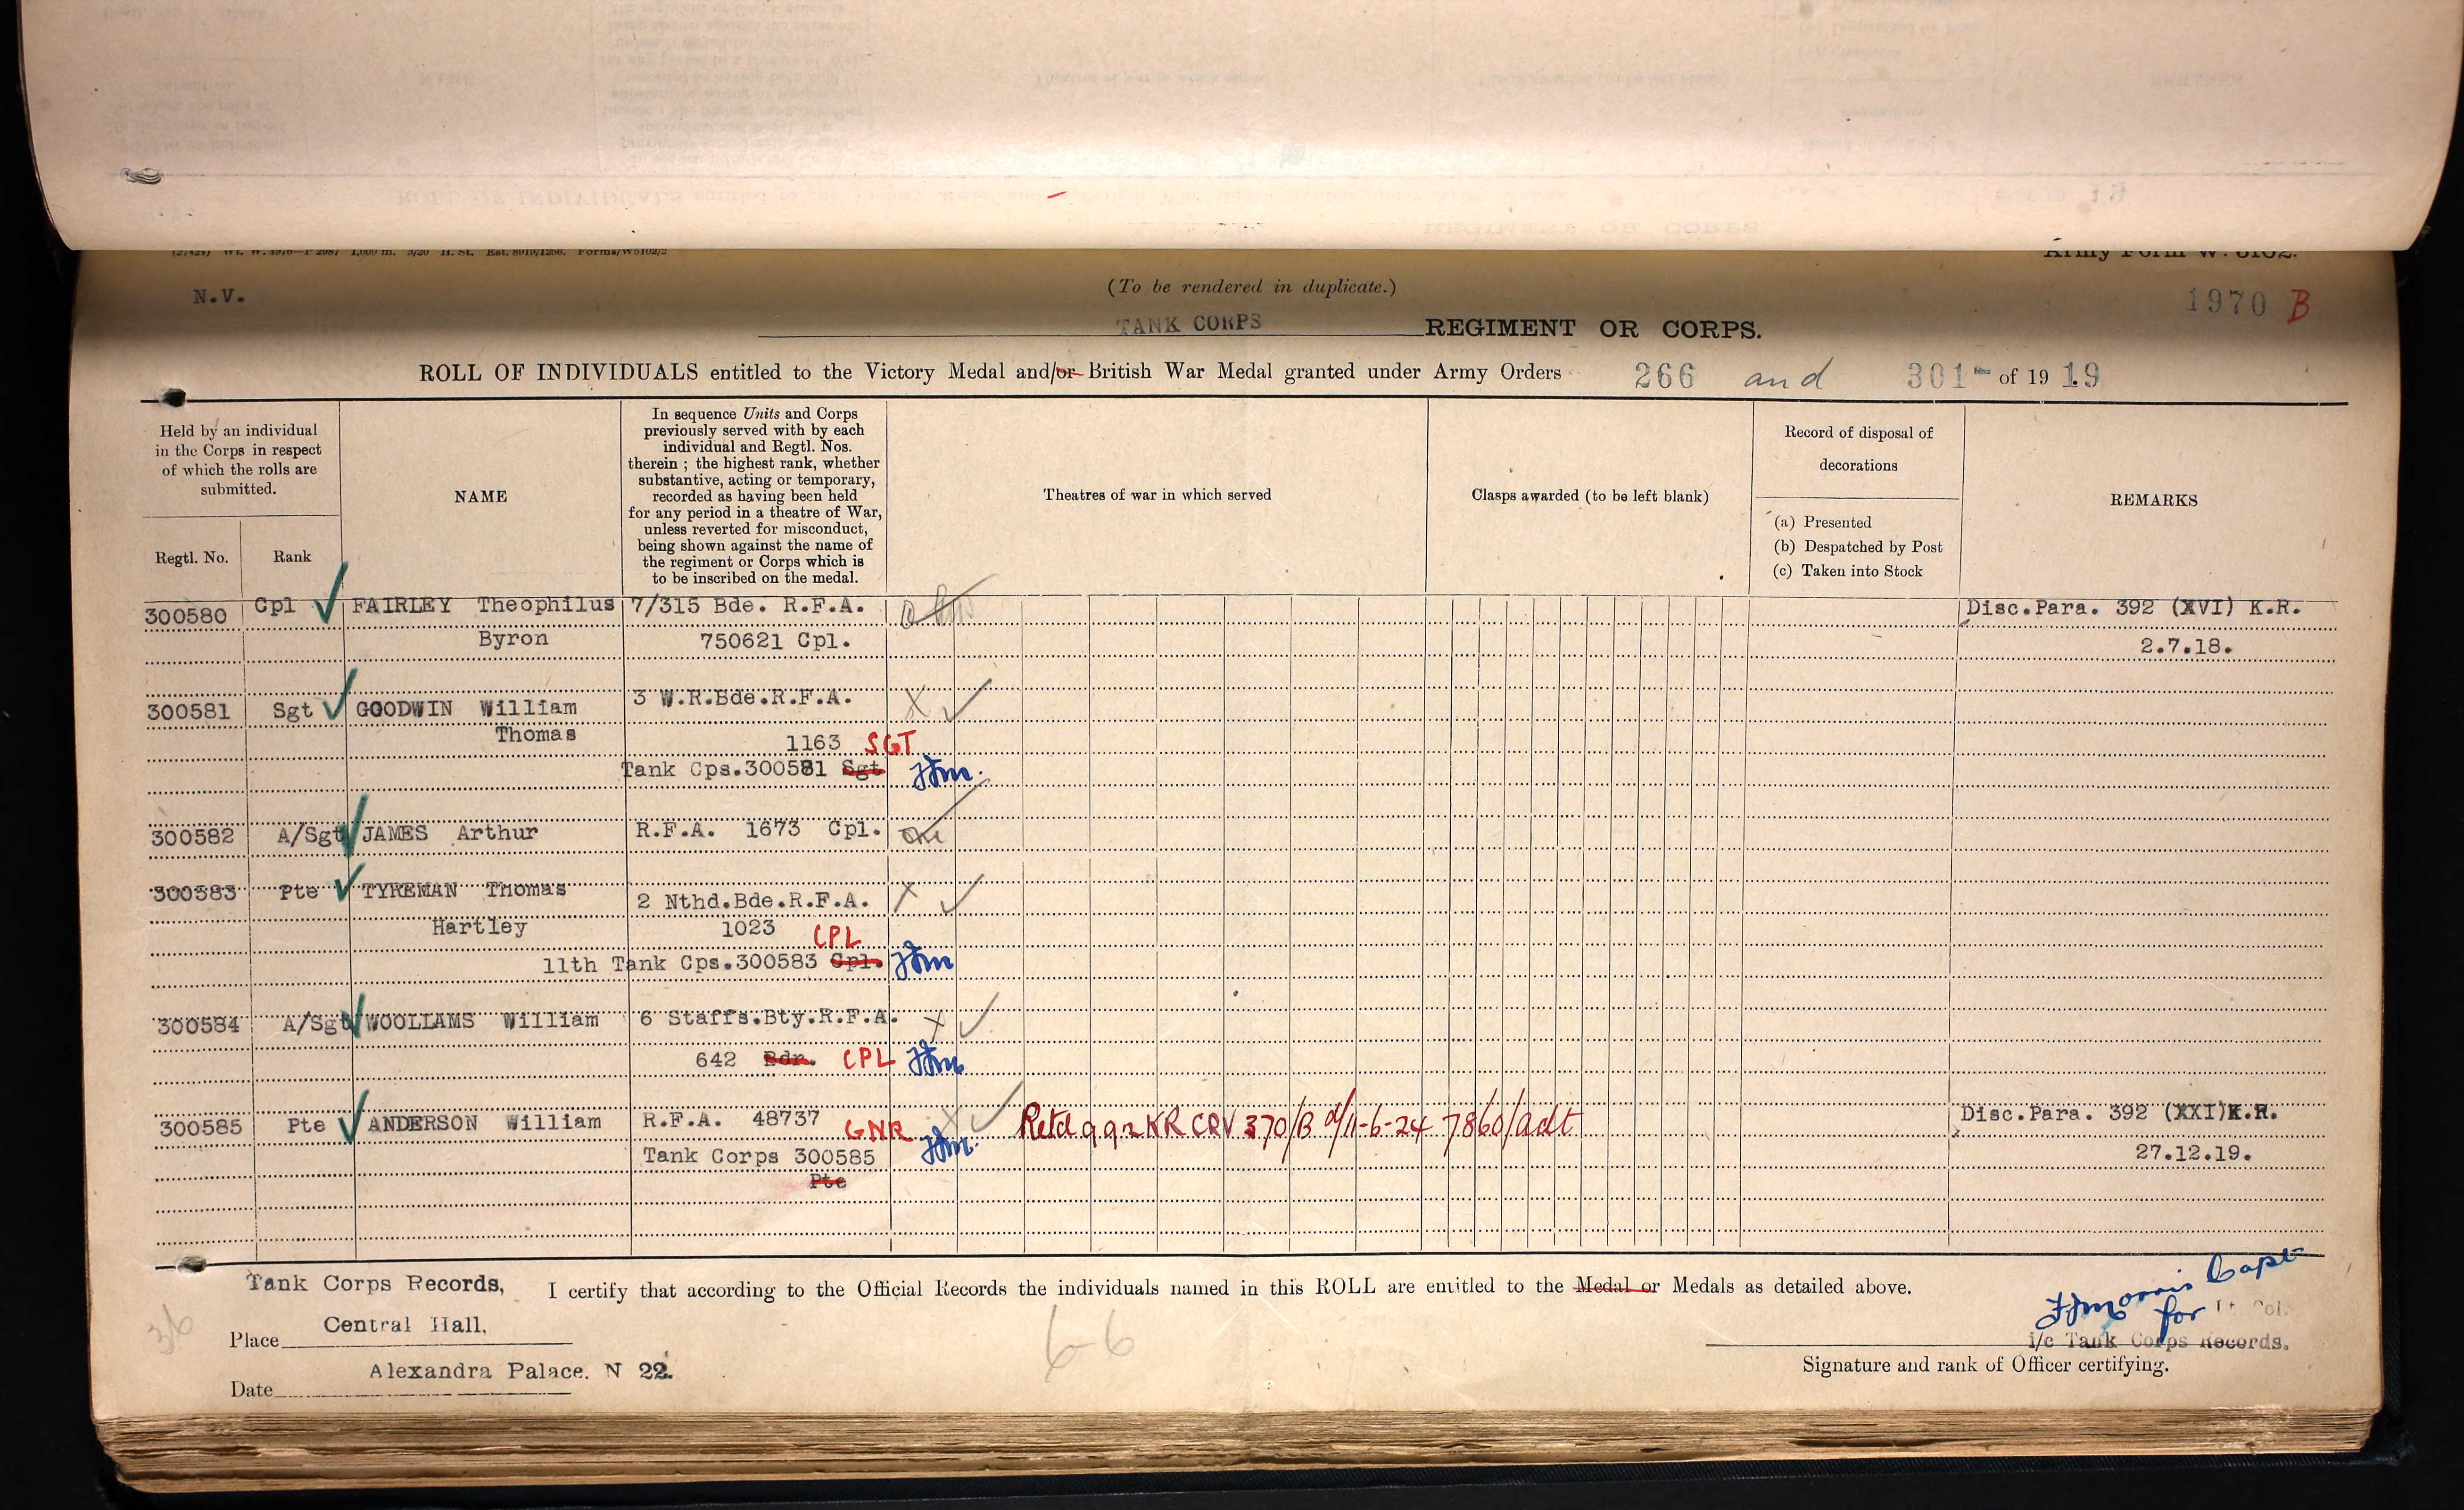 (27424) Wt. W. 4976—P 2987 1,000 m. 3/20 H. St. Est. 8919/1266. Forms/W5102/2
Army Form W. 5102.
N.V.
(To be rendered in duplicate.)
1970 B
TANK CORPS REGIMENT OR CORPS.
ROLL OF INDIVIDUALS entitled to the Victory Medal and/or British War Medal granted under Army Orders 266 and 301 of 19 19
Held by an individual in the Corps in respect of which the rolls are submitted.
Regtl. No.
Rank
NAME
In sequence Units and Corps
previously served with by each
individual and Regtl. Nos.
therein ; the highest rank, whether
substantive, acting or temporary,
recorded as having been held
for any period in a theatre of War,
unless reverted for misconduct,
being shown against the name of
the regiment or Corps which is
to be inscribed on the medal.
Theatres of war in which served
Clasps awarded (to be left blank)
Record of disposal of
decorations
(a) Presented
(b) Despatched by Post
(c) Taken into Stock
REMARKS
300580 Cpl FAIRLEY Theophilus 7/315 Bde. R.F.A. Disc.Para. 392 (XVI) K.R.
Byron 750621 Cpl. 2.7.18.
300581 Sgt GOODWIN William 3 W.R.Bde.R.F.A.
Thomas 1163 SGT
Tank Cps.300581 Sgt
300582 A/Sgt JAMES Arthur R.F.A. 1673 Cpl.
300583 Pte TYREMAN Thomas 2 Nthd.Bde.R.F.A.
Hartley 1023 CPL
11th Tank Cps.300583 Cpl.
300584 A/Sgt WOOLLAMS William 6 Staffs.Bty.R.F.A.
642 Bdr. CPL
300585 Pte ANDERSON William R.F.A. 48737 GNR Retd 992 KR CRV 370/B d/11-6-24 7860/adt Disc.Para. 392 (XXI)K.R.
Tank Corps 300585 27.12.19.
Pte
Tank Corps Records, I certify that according to the Official Records the individuals named in this ROLL are entitled to the Medal or Medals as detailed above.
Place Central Hall,
Alexandra Palace. N 22.
Date
66
36
Morris Capt
for Lt Col.
i/c Tank Corps Records.
Signature and rank of Officer certifying.